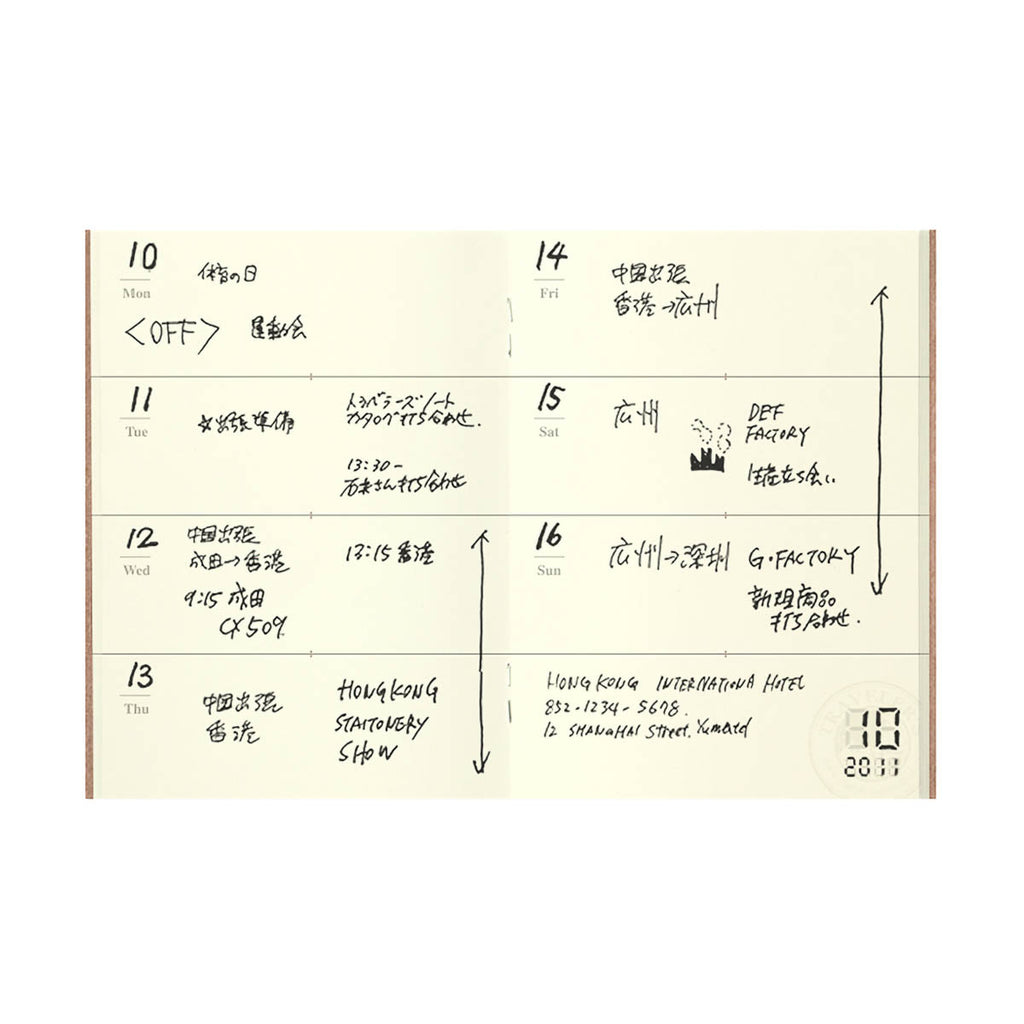 10
Mon
体育の日
<OFF> 運動会
11
Tue
☆出張準備
トラベラーズノート
カタログ打ち合わせ.
13:30-
石末さん打ち合わせ
12
Wed
中国出張
成田→香港
9:15 成田
CX509
13:15 香港
13
Thu
中国出張
香港
HONGKONG
STAITONERY
SHOW
14
Fri
中国出張
香港→広州
15
Sat
広州
DEF
FACTORY
生産立ち会い
16
Sun
広州→深圳
G・FACTORY
新規商品
打ち合わせ.
HONG KONG INTERNATIONA HOTEL
852-1234-5678.
12 SHANGHAI Street.
10
2011